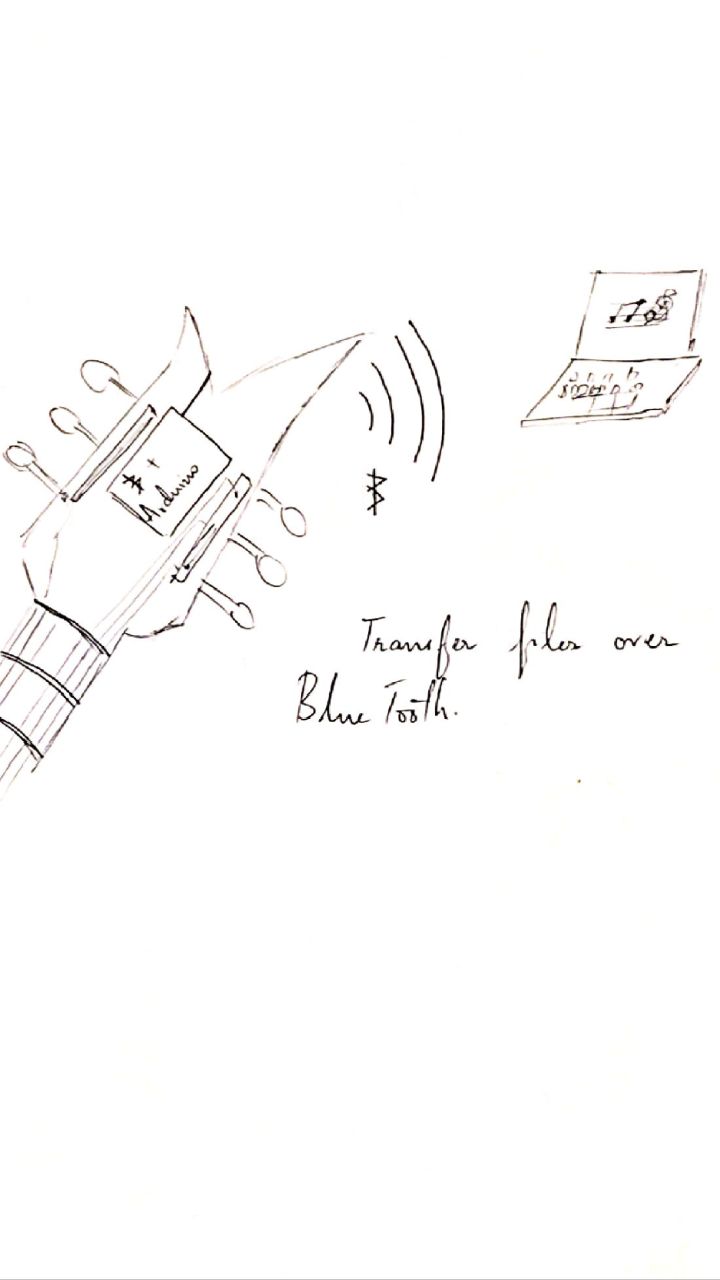 +
Arduino
Transfer files over
BlueTooth.